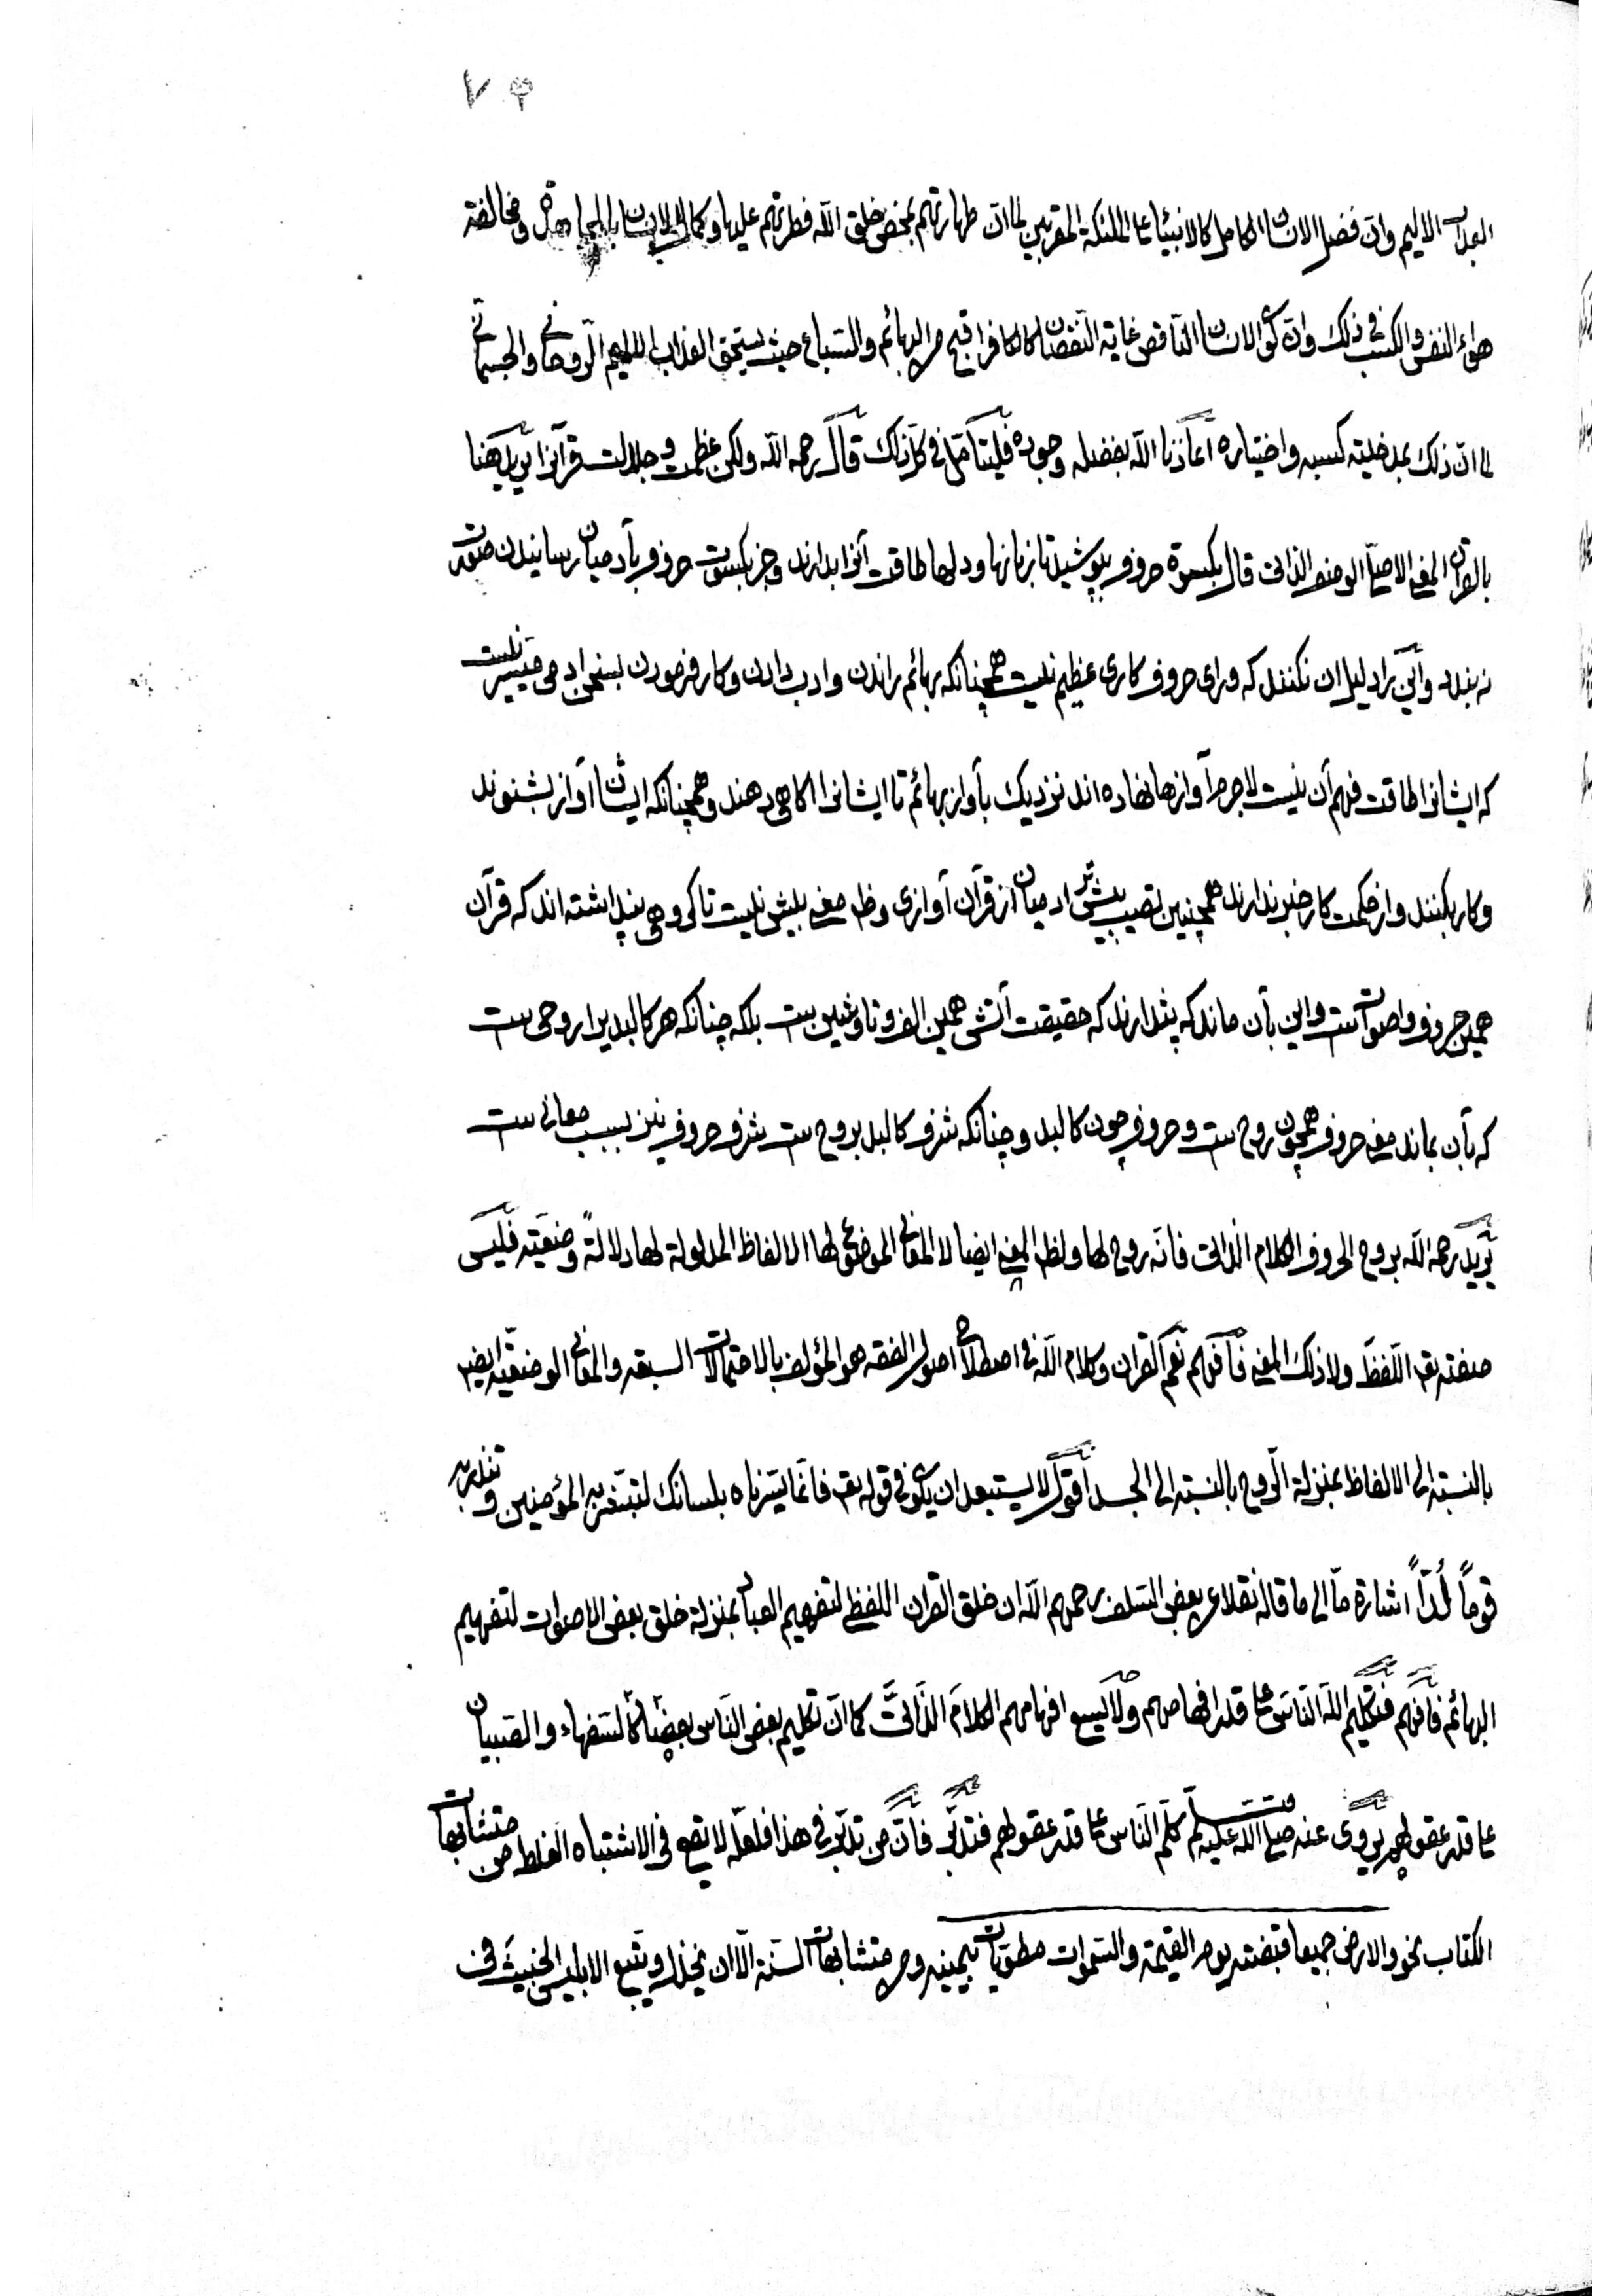 العذاب الاليم وان فضل الانسان الكامل كالانبياء على الملئكة المقربين لما ان طهارتهم بمحض خلق الله فطرتهم عليها وكمال الانسان بالمجاهدة ومخالفة
هواء النفس والكسب فى ذلك وان كون الانسان الناقص غاية النقصان كالكافر اقبح من البهائم والسباع حيث يستحق العذاب الاليم الروحانى والجسمانى
لما ان ذلك بمدخلية كسبه واختياره اعاذنا الله بفضله وجوده فليتأمل فى كل ذلك قال رحمه الله ولكن عظمت وجلالت قرآنرا يريد هنا
بالقرآن المعنى الاصلى الوصف الذاتى قال بكسوة حروف بپوشيد تا زبانها ودلها طاقت آنرا بدارند وجز بكسوت حروف بآدميان رسانيدن صورت
نه بندد واين را دليل آن نكنند كه وراى حروف كارى عظيم نيست همچنانكه بهائم راندن وادب دادن وكار فرمودن بسخن آدمى ميسر نيست
كه ايشانرا طاقت فهم آن نيست لاجرم آوازها نهاده اند نزديك بآواز بهائم تا ايشانرا آكاهى دهند وهمچنانكه ايشان آواز بشنوند
وكار بكنند واز حكمت كار خبر ندارند همچنين نصيب بيشتر آدميان از قرآن آوازى وظاهر معنى بيش نيست تا كروهى پنداشته اند كه قرآن
همين حروف واصوات ست واين بآن ماند كه پندارند كه حقيقت آتش همين الف وتا وشين ست بلكه چنانكه هر كالبد را روحى ست
كه بآن بماند معنى حروف همچون روح ست وحروف چون كالبد وچنانكه شرف كالبد بروح ست شرف حروف نيز بسبب معانى ست
يريد رحمه الله بروح الحروف الكلام الذاتى فانه روح لها ولظاهر المعنى ايضا لا المعانى الموضوع لها الالفاظ المدلولة لها دلالة وضعية فليس
صفته تعم اللفظ ولا ذلك المعنى فافهم نعم القرآن وكلام الله فى اصطلاح اصول الفقه هو المؤلف بالاحتمالات السبعة والمعانى الوضعية ايضا
بالنسبة الى الالفاظ بمنزلة الروح بالنسبة الى الجسد اقول لا يستبعد ان يكون فى قوله تعم فانما يسرناه بلسانك لتبشر به المؤمنين وتنذر به
قوماً لُدّاً اشارة ما الى ما قاله نقلا عن بعض السلف رحمهم الله ان خلق القرآن اللفظى لتفهيم العباد بمنزلة خلق بعض الاصوات لتفهيم
البهائم فافهم فتكليم الله الناس على قدر افهامهم ولا يسع افهامهم الكلام الذاتى كما ان تكليم بعض الناس بعضا كالسفهاء والصبيان
على قدر عقولهم يروى عنه صلى الله عليه وسلم كلم الناس على قدر عقولهم فتدبر فان من تدبر فى هذا فلعله لا يقع فى الاشتباه الغلط من متشابهات
الكتاب نحو والارض جميعا قبضته يوم القيمة والسموات مطويات بيمينه ومن متشابهات السنة الا ان يخذل ويتبع الابليس الخبيث فى